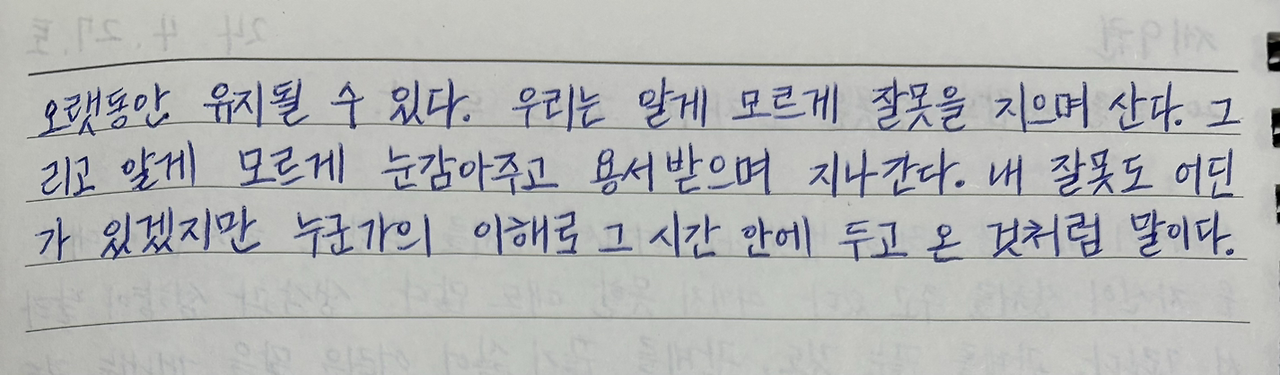 오랫동안 유지될 수 있다. 우리는 알게 모르게 잘못을 지으며 산다. 그
리고 알게 모르게 눈감아주고 용서받으며 지나간다. 내 잘못도 어딘
가 있겠지만 누군가의 이해로 그 시간 안에 두고 온 것처럼 말이다.